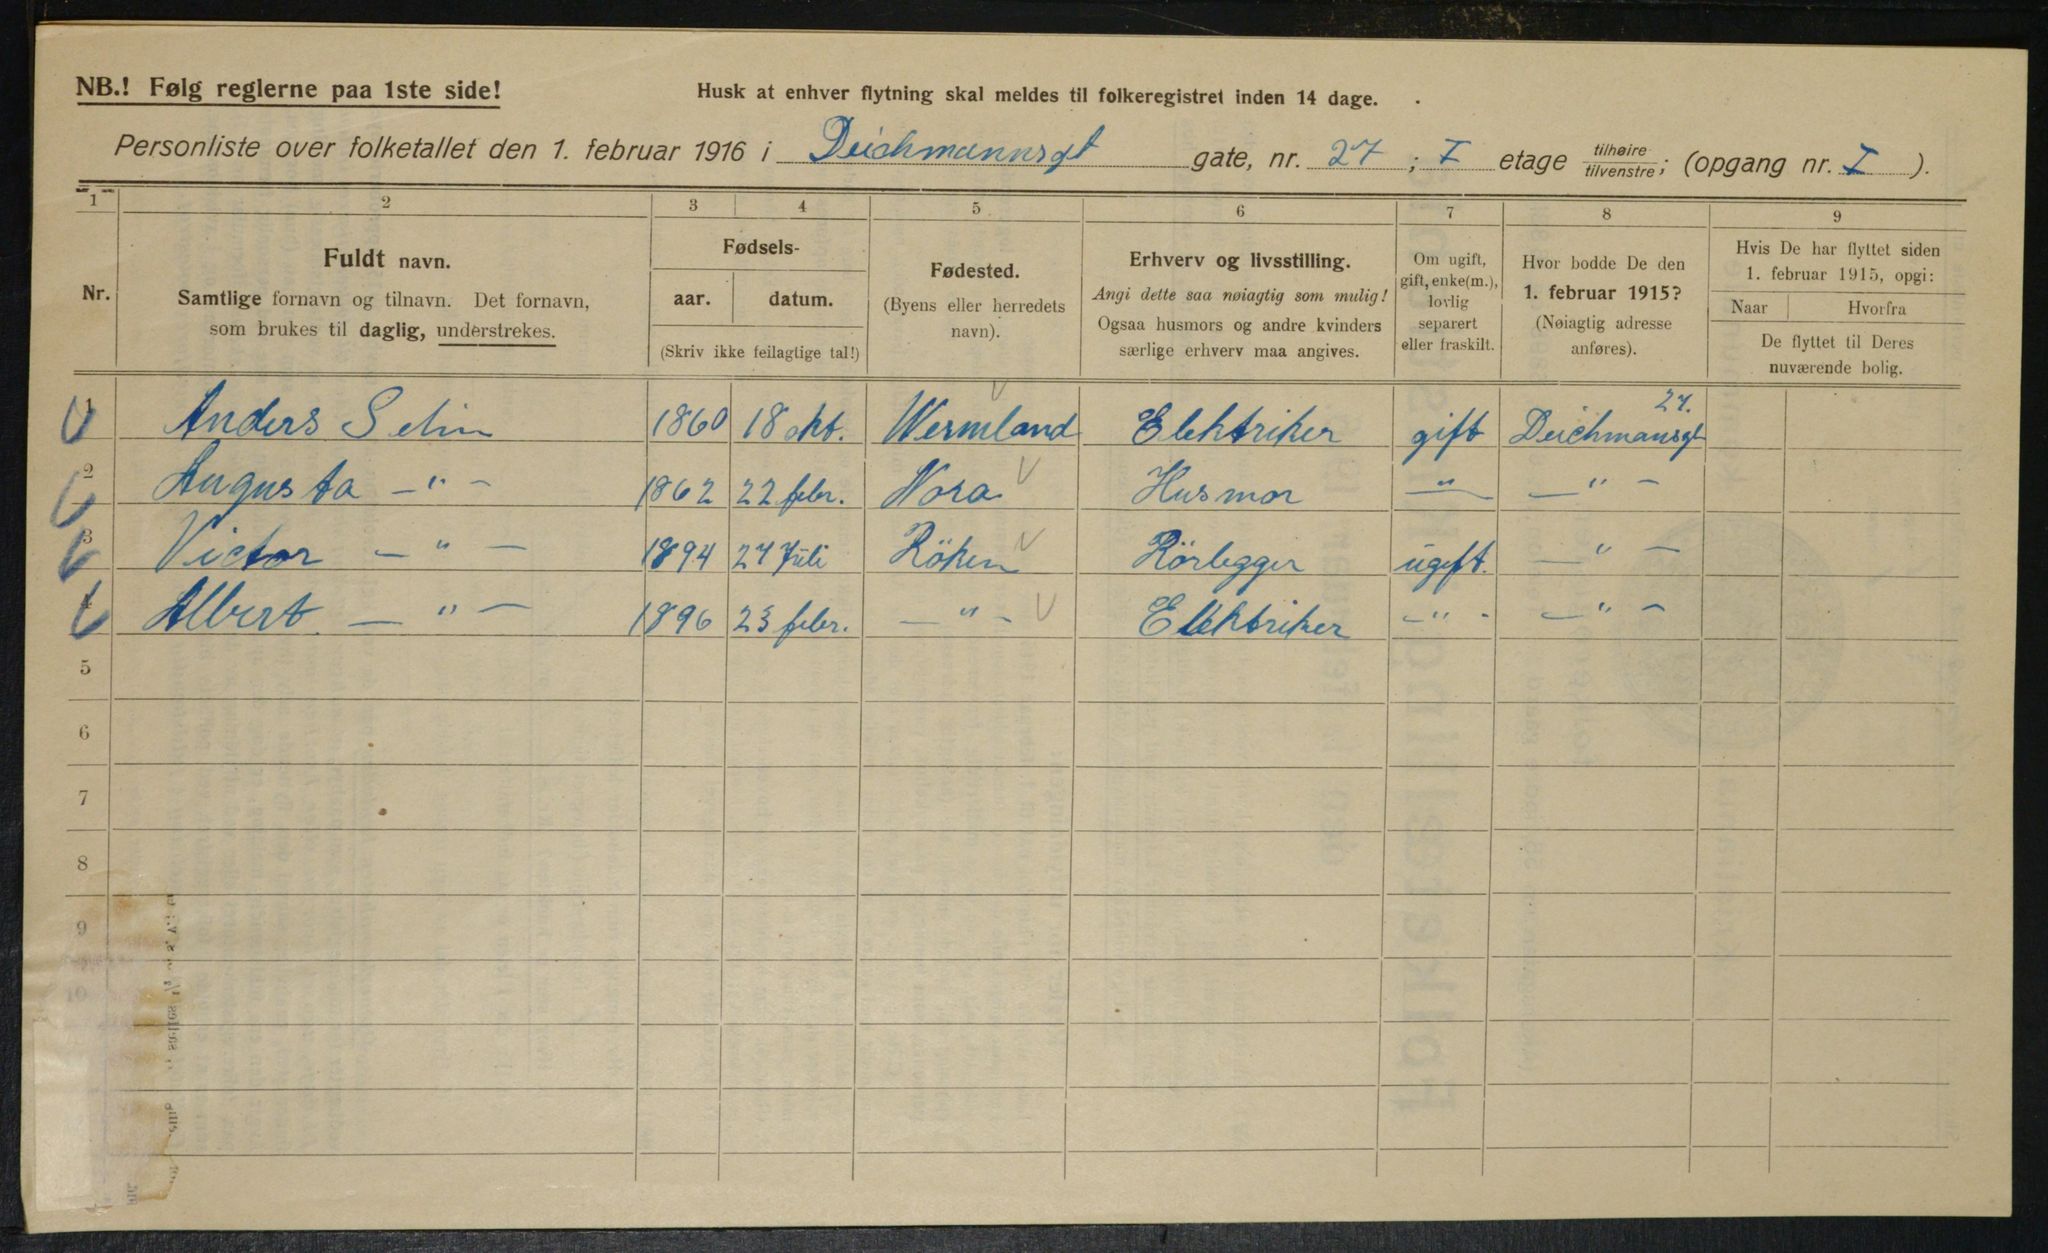 NB.! Følg reglerne paa 1ste side!
Husk at enhver flytning skal meldes til folkeregistret inden 14 dage.
Personliste over folketallet den 1. februar 1916 i Deichmannsgt gate, nr. 27 ; I etage tilhøire tilvenstre ; (opgang nr. I ).
1 2 3 4 5 6 7 8 9
Nr.
Fuldt navn.
Samtlige fornavn og tilnavn. Det fornavn,
som brukes til daglig, understrekes.
Fødsels-
aar. datum.
(Skriv ikke feilagtige tal!)
Fødested.
(Byens eller herredets
navn).
Erhverv og livsstilling.
Angi dette saa nøiagtig som mulig!
Ogsaa husmors og andre kvinders
særlige erhverv maa angives.
Om ugift,
gift, enke(m.),
lovlig
separert
eller fraskilt.
Hvor bodde De den
1. februar 1915?
(Nøiagtig adresse
anføres).
Hvis De har flyttet siden
1. februar 1915, opgi:
Naar Hvorfra
De flyttet til Deres
nuværende bolig.
1 Anders Selin 1860 18 okt. Wermland Elektriker gift Deichmansgt 27.
2 Augusta —"— 1862 22 febr. Nora Husmor —"— —"—
3 Victor —"— 1894 27 Juli Röken Rörlegger ugift. —"—
4 Albert —"— 1896 23 febr. —"— Elektriker —"— —"—
5
6
7
8
9
10